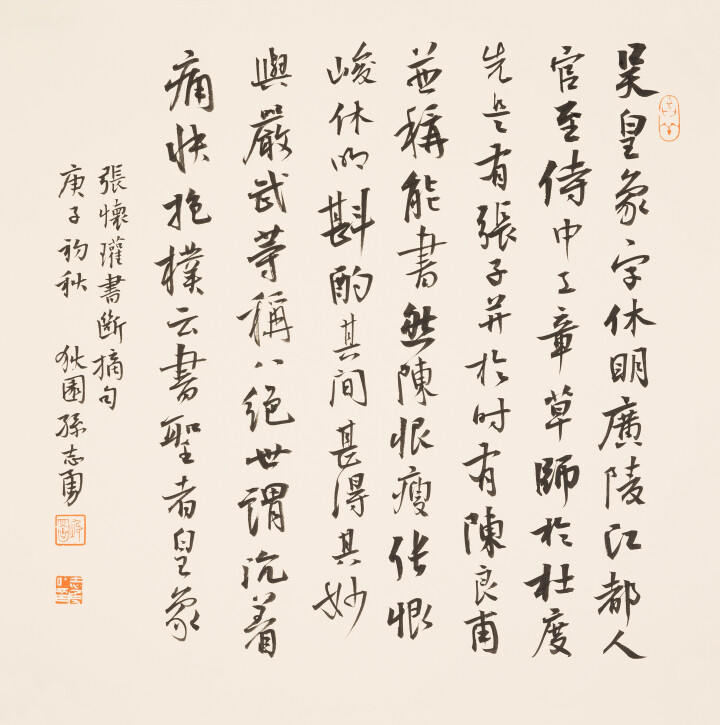 吴皇象字休明廣陵江都人
官至侍中工章草師於杜度
先是有張子并於时有陳良甫
並稱能書然陳恨瘦张恨
峻休明斟酌其间甚得其妙
與嚴武等稱八絕世謂沉着
痛快抱樸云書聖者皇象
張懷瓘書斷摘句
庚子初秋 狄園孫志勇